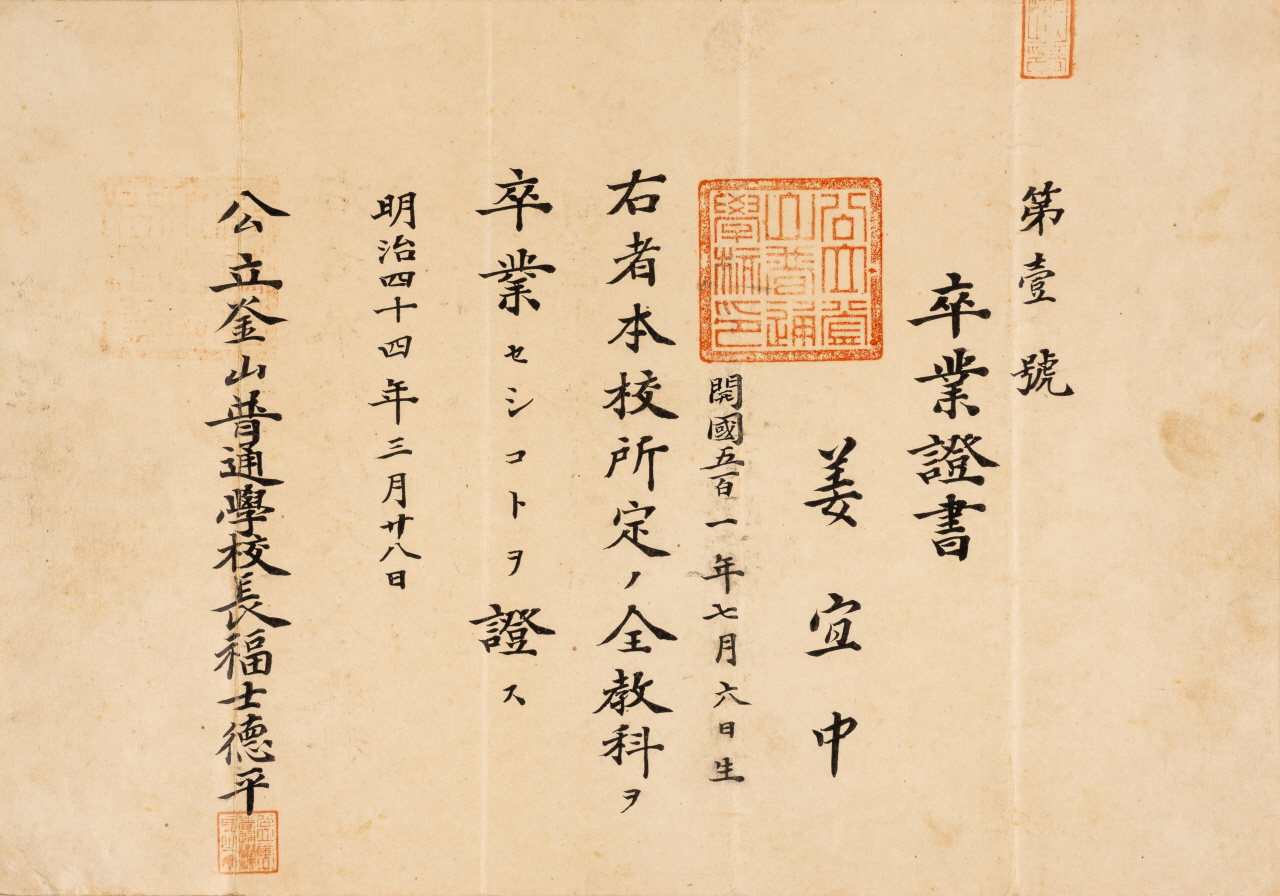 第壹號
卒業證書
姜宜中
開國五百一年七月六日生
公立釜山普通學校印
右者本校所定ノ全教科ヲ
卒業セシコトヲ證ス
明治四十四年三月廿八日
公立釜山普通學校長福士德平